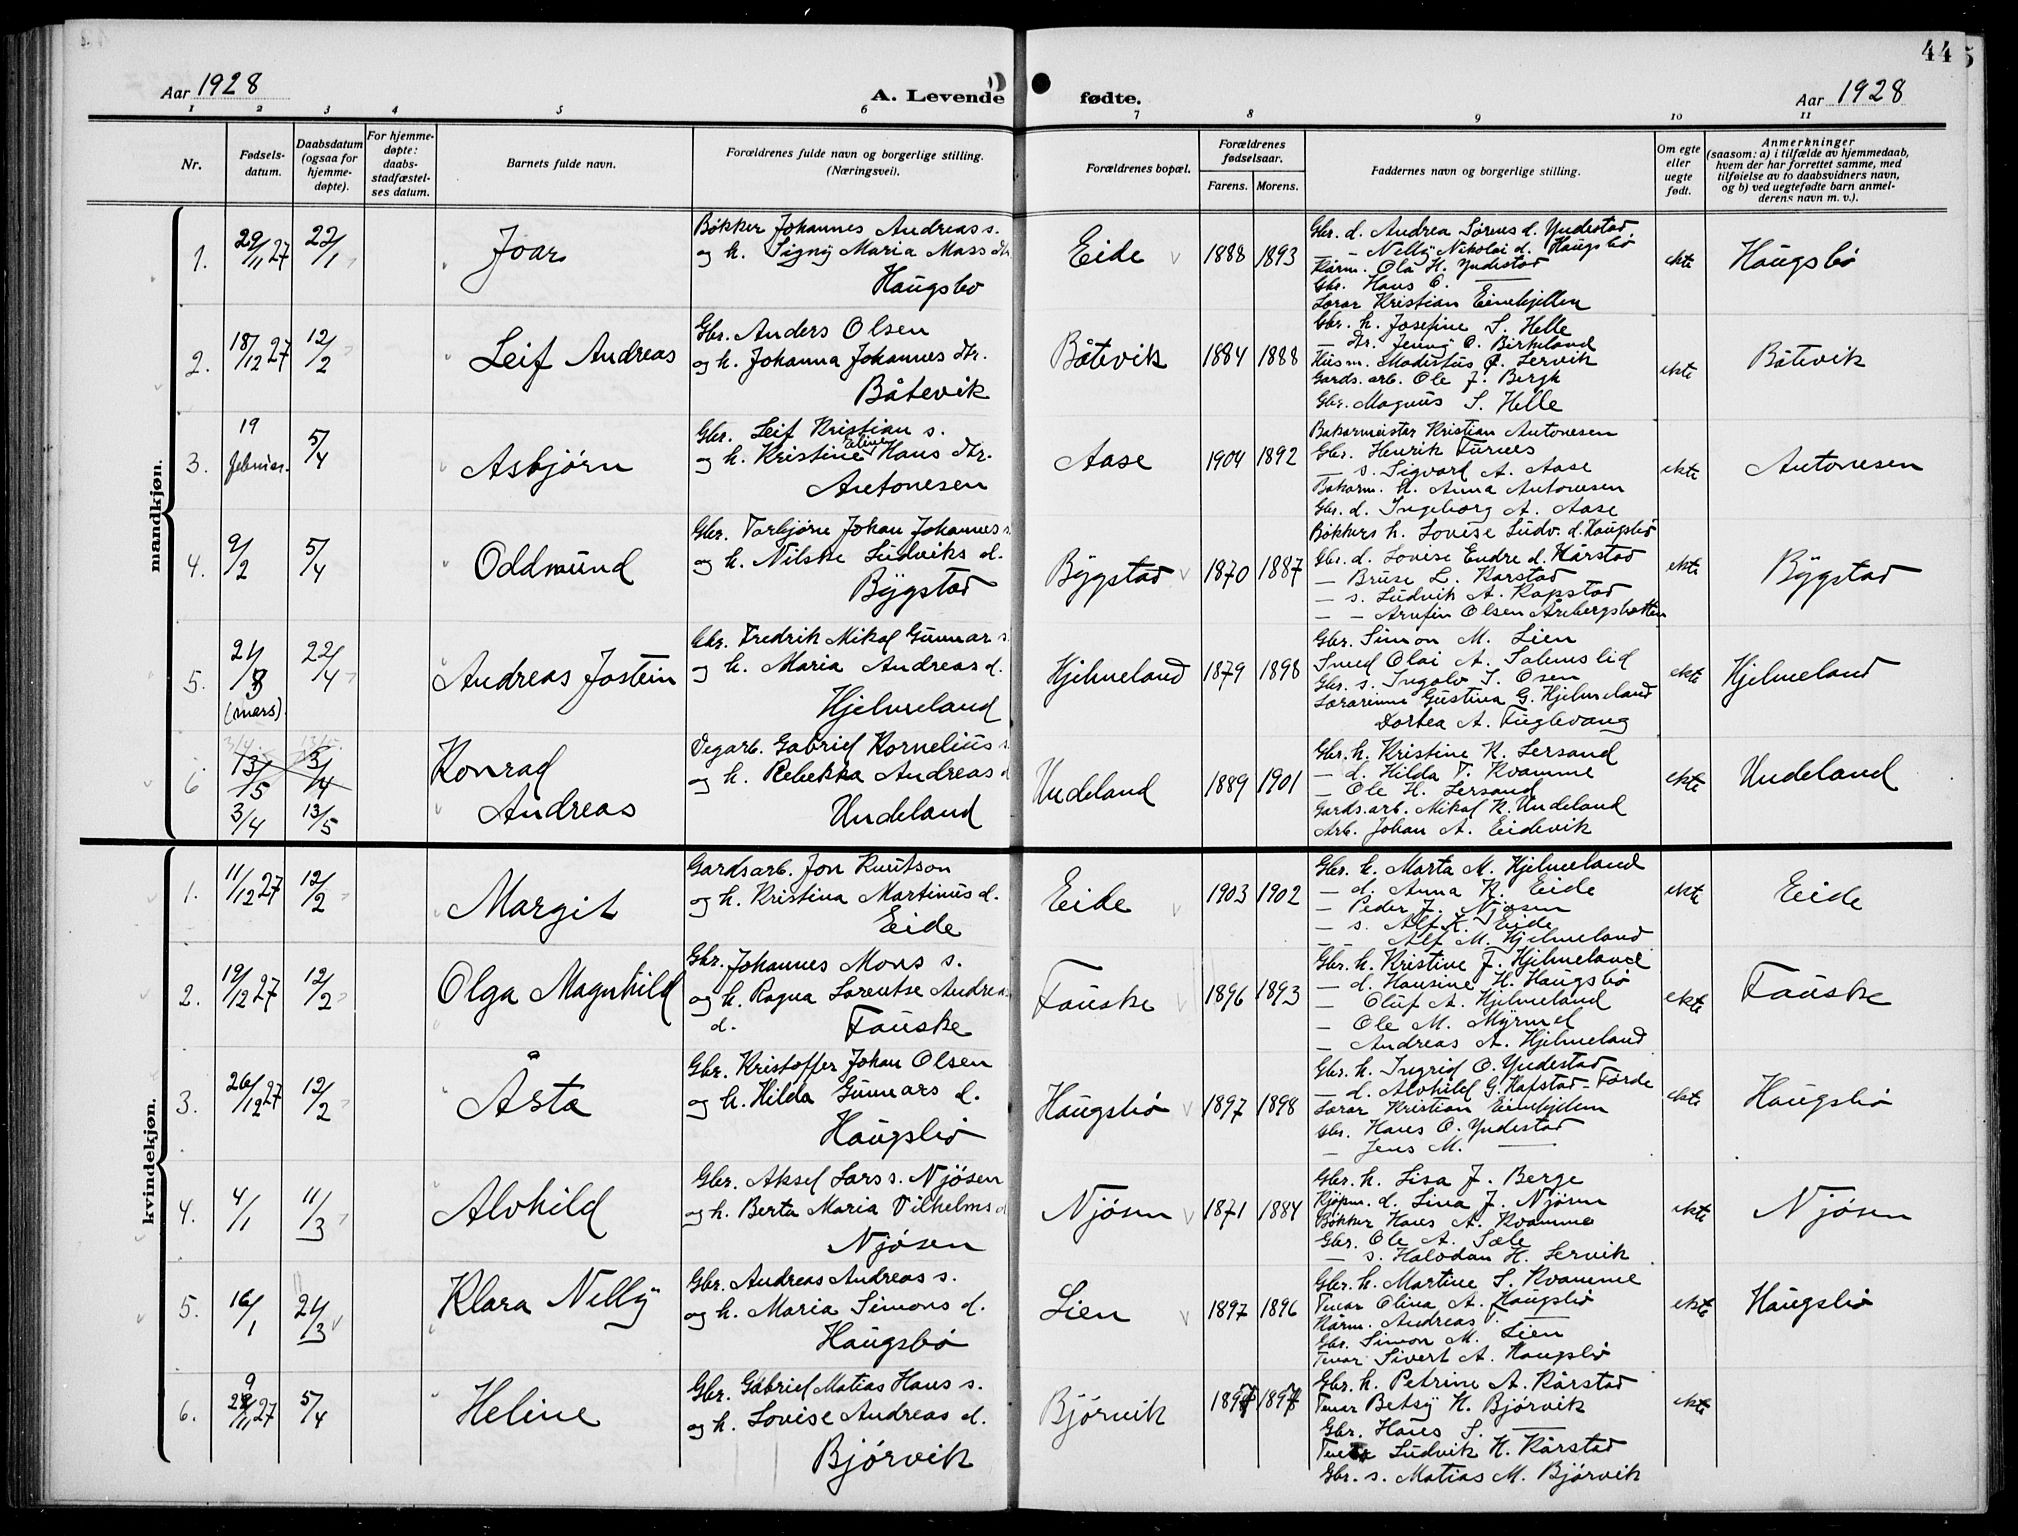 44
Aar 1928
A. Levende fødte.
Aar 1928
1 2 3 4 5 6 7 8 9 10 11
Nr.
Fødsels-
datum.
Daabsdatum
(ogsaa for
hjemme-
døpte).
For hjemme-
døpte:
daabs-
stadfæstel-
ses datum.
Barnets fulde navn.
Forældrenes fulde navn og borgerlige stilling.
(Næringsvei).
Forældrenes bopæl.
Forældrenes
fødselsaar.
Farens. Morens.
Faddernes navn og borgerlige stilling.
Om egte
eller
uegte
født.
Anmerkninger
(saasom: a) i tilfælde av hjemmedaab,
hvem der har forrettet samme, med
tilføielse av to daabsvidners navn,
og b) ved uegtefødte barn anmel-
derens navn m. v.).
mandkjøn.
1. 29/11 27 22/1 Joar
Bøkker Johannes Andreas s.
og h. Signy Maria Mass dtr.
Haugsbø
Eide 1888 1893
Gbr. d. Andrea Sørens d. Yndestad
— Nelly Nikolai d. Haugsbø
Kårm. Ola H. Yndestad
Gbr. Hans O. —
Lærar Kristian Eimhjellen
ekte Haugsbø
2. 18/12 27 12/2 Leif Andreas
Gbr. Anders Olsen
og h. Johanna Johannes dtr.
Båtevik
Båtevik 1884 1888
Gbr. h. Josefine S. Helle
— dtr. Jenny O. Birkeland
Husm. Modestus O. Lervik
Gards. arb. Ole J. Bergh
Gbr. Magnus S. Helle
ekte Båtevik
3. 19 februar. 5/4 Asbjørn
Gbr. Leif Kristian s.
og h. Kristine Eline Hans dtr.
Antonesen
Aase 1904 1892
Bakarmeistar Kristian Antonesen
Gbr. Henrik Furnes
— s. Sigvard A. Aase
Bakarm. h. Anna Antonesen
Gbr. d. Ingeborg A. Aase
ekte Antonesen
4. 9/2 5/4 Oddmund
Gbr. Torbjørn Johan Johannes s.
og h. Nilske Ludviks d.
Bygstad
Bygstad 1870 1887
Bøkkers h. Lovise Ludv. d. Haugsbø
Gbr. d. Lovise Endre d. Kårstad
— Bruse L. Karstad
— s. Ludvik A. Rapstad
— — Arnfin Olsen
ekte Bygstad
5. 21/3 (mars). 22/4 Andreas Jostein
Gbr. Fredrik Mikal Gunnar s.
og h. Maria Andreas d.
Hjelmeland
Hjelmeland 1879 1898
Gbr. Simon M. Lien
Smed Olai A. Solmslid
Gbr. s. Ingolv I. Osen
Lærarinne Gustina G. Hjelmeland
Dortea A. Fuglevang
ekte Hjelmeland
6 3/4 13/5
13/5 3/4
3/4 13/5
Konrad
Andreas
Vegarb. Gabriel Kornelius s.
og h. Rebekka Andreas d
Undeland
Undeland 1889 1901
Gbr. h. Kristine K. Lersand
— d. Hilda T. Kvamme
— Ole H. Lersand
Gards. arb. Mikal K. Undeland
Arb. Johan A. Eidevik
ekte Undeland
kvindekjøn.
1. 11/12 27 12/2 Margit
Gardsarb. Jon Knutson
og h. Kristina Martinus d.
Eide
Eide 1903 1902
Gbr. h. Marta M. Hjelmeland
— d. Anna K. Eide
— Peder J. Njøsen
— s. Alf K. Eide
— — Alf M. Hjelmeland
ekte Eide
2. 19/12 27 12/2 Olga Magnhild
Gbr. Johannes Mons s.
og h. Ragna Lorentse Andreas
d. Fauske
Fauske 1896 1893
Gbr. h. Kristine J. Hjelmeland
— d. Hansine H. Haugsbø
— Oluf A. Hjelmeland
— Ole M. Myrmel
— Andreas A. Hjelmeland
ekte Fauske
3. 26/12 27 12/2 Åsta
Gbr. Kristoffer Johan Olsen
og h. Hilda Gunnars d.
Haugsbø
Haugsbø 1897 1898
Gbr. h. Ingrid O. Yndestad
— d. Alvhild G. Hafstad - Førde
Lærar Kristian Eimhjellen
Gbr. Hans O. Yndestad
— Jens M. —
ekte Haugsbø
4. 4/1 11/3 Alvhild
Gbr. Aksel Lars s. Njøsen
og h. Berta Maria Vilhelms d
Njøsen
Njøsen 1871 1884
Gbr. h. Lisa J. Berge
Kjøpm. d. Lina J. Njøsen
Bøkker Hans A. Kvamme
Gbr. Ole A. Sæle
— s. Halvdan H. Lervik
ekte Njøsen
5. 16/1 21/3 Klara Nelly
Gbr. Andreas Andreas s.
og h. Maria Simons d.
Haugsbø
Lien 1897 1896
Gbr. h. Martine S. Kvamme
Tenar Olina A. Haugsbø
Kårm. Andreas —
Gbr. Simon M. Lien
Tenar Sivert A. Haugsbø
ekte Haugsbø
6. 29/11 27 5/4 Heline
Gbr. Gabriel Matias Hans s.
og h. Lovise Andreas d.
Bjørvik
Bjørvik 1897 1897
Gbr. h. Petrine A. Kårstad
Tenar Betsy H. Bjørvik
Gbr. Hans S. —
Tenar Ludvik H. Kårstad
Gbr. s. Matias M. Bjørvik
ekte